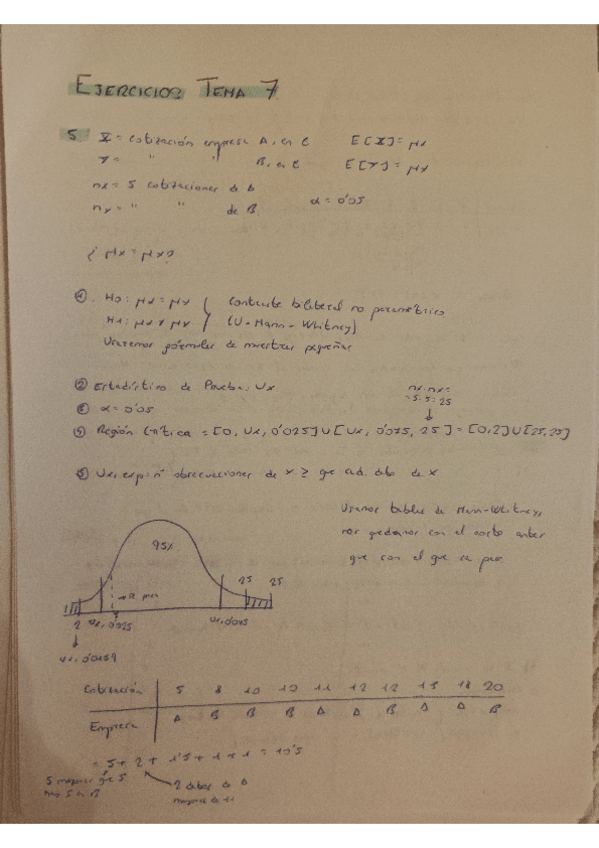 EJERCICIOS TEMA 7
5 X = cotización empresa A, en € E[X] = μx
Y = " " B, en € E[Y] = μy
nx = 5 cotizaciones de A
ny = " " de B α = 0'05
¿ μx = μy?
① H0: μx = μy
H1: μx ≠ μy
Contraste bilateral no paramétrico
(U-Mann-Whitney)
Usaremos fórmulas de muestras pequeñas
② Estadístico de Prueba: Ux
nx·ny =
= 5·5 = 25
③ α = 0'05
④ Región Crítica = [0, Ux, 0'025] U [Ux, 0'975, 25] = [0,2] U [25,25]
⑤ Ux, exp: nº observaciones de Y ≥ que cada dato de X
Usamos tablas de Mann-Whitney,
nos quedamos con el antes
que con el que se pasa
95%
25 25
2 Ux, 0'025
Ux, 0'0159
Cotización 5 8 10 10 11 12 12 13 18 20
Empresa A B B B A A B A A B
= 5 + 2 + 1'5 + 1 + 1 = 10'5
5 mayores que 5
2 datos de B
mayores de 11